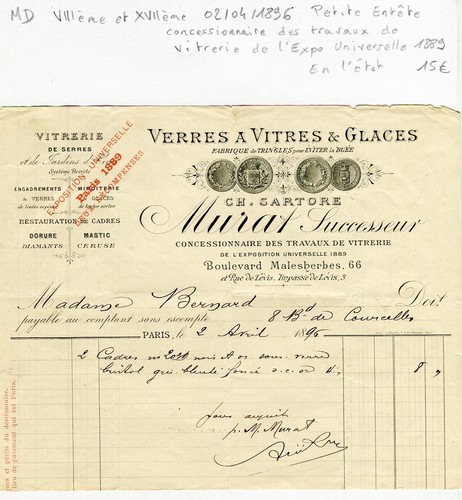 MD VIIIème et XVIIème 02/04/1896 Petite Entête
concessionnaire des travaux de
vitrerie de l'Expo Universelle 1889
En l'état 15€
VITRERIE
DE SERRES
et de Jardins d'Hiver
Système Breveté
ENCADREMENTS
& VERRES
de toutes espèces
MIROITERIE
& GLACES
de toutes sortes
RESTAURATION DE CADRES
DORURE MASTIC
DIAMANTS CERUSE
EXPOSITION UNIVERSELLE
Paris 1889
DEUX RÉCOMPENSES
VERRES A VITRES & GLACES
FABRIQUE de TRINGLES pour ÉVITER la BUÉE
CH. SARTORE
Murat Successeur
CONCESSIONNAIRE DES TRAVAUX DE VITRERIE
DE L'EXPOSITION UNIVERSELLE 1889
Boulevard Malesherbes, 66
et Rue de Lévis, Impasse de Lévis, 3
Madame Bernard Doit
payable au comptant sans escompte 8 Bd de Courcelles
PARIS, le 2 Avril 1896
2 Cadres noirs et or sous verre
bristol gris bleuté foncé 4 8
Pour acquit
p. M. Murat